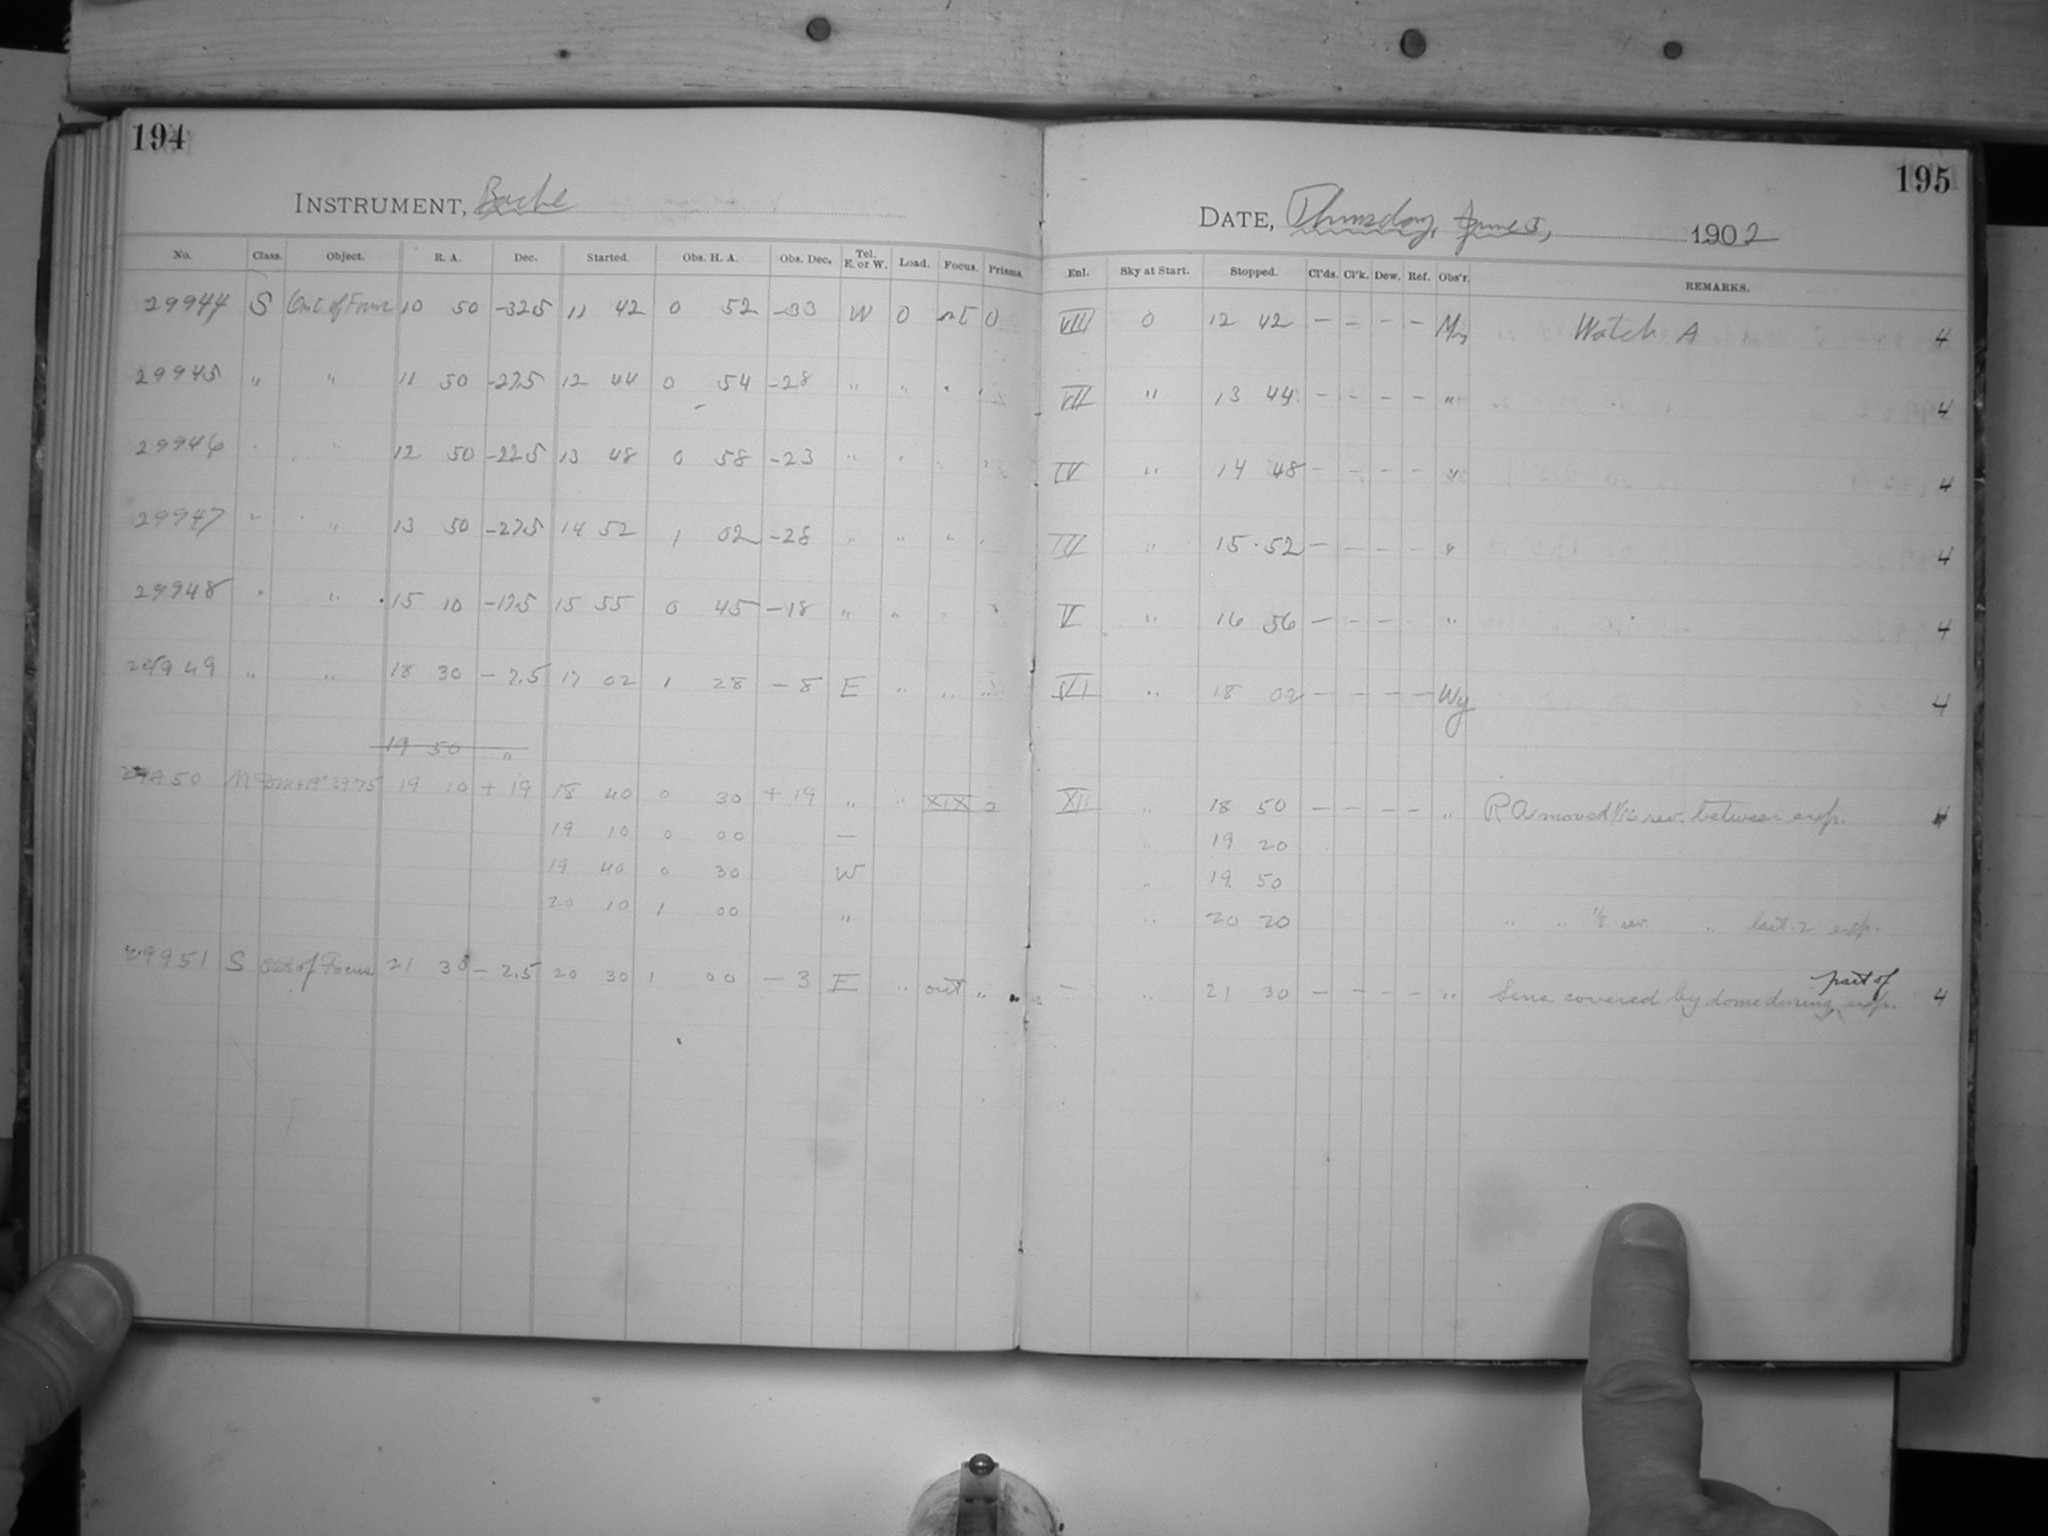 194
INSTRUMENT, Bache
No. Class. Object. R. A. Dec. Started. Obs. H. A. Obs. Dec. Tel. E. or W. Load. Focus. Prisms.
29944 S Out of Focus 10 50 -32.5 11 42 0 52 -33 W 0 out 0
29945 " " 11 50 -27.5 12 44 0 54 -28 " " " "
29946 " " 12 50 -22.5 13 48 0 58 -23 " " " "
29947 " " 13 50 -27.5 14 52 1 02 -28 " " " "
29948 " " 15 10 -17.5 15 55 0 45 -18 " " " "
29949 " " 18 30 -7.5 17 02 1 28 -8 E " " "
19 50 "
29950 DM+19°3975 19 10 +19 18 40 0 30 +19 " " XIX 0
19 10 0 00 —
19 40 0 30 W
20 10 1 00 "
29951 S Out of Focus 21 30 -2.5 20 30 1 00 -3 E " out "
195
DATE, Thursday, June 5, 1902
Enl. Sky at Start. Stopped. Cl'ds. Cl'k. Dew. Ref. Obs'r. REMARKS.
VIII 0 12 42 — — — — Watch A 4
VII " 13 44 — — — — " 4
IV " 14 48 — — — — " 4
IV " 15 52 — — — — " 4
V " 16 56 — — — — " 4
VI " 18 02 — — — — Wy 4
XII " 18 50 — — — — " R A moved 1/16 rev. between exp. 4
" 19 20
" 19 50
" 20 20 " " 1/8 rev. " last 2 exp.
— " 21 30 — — — — " Lens covered by dome during part of exp. 4